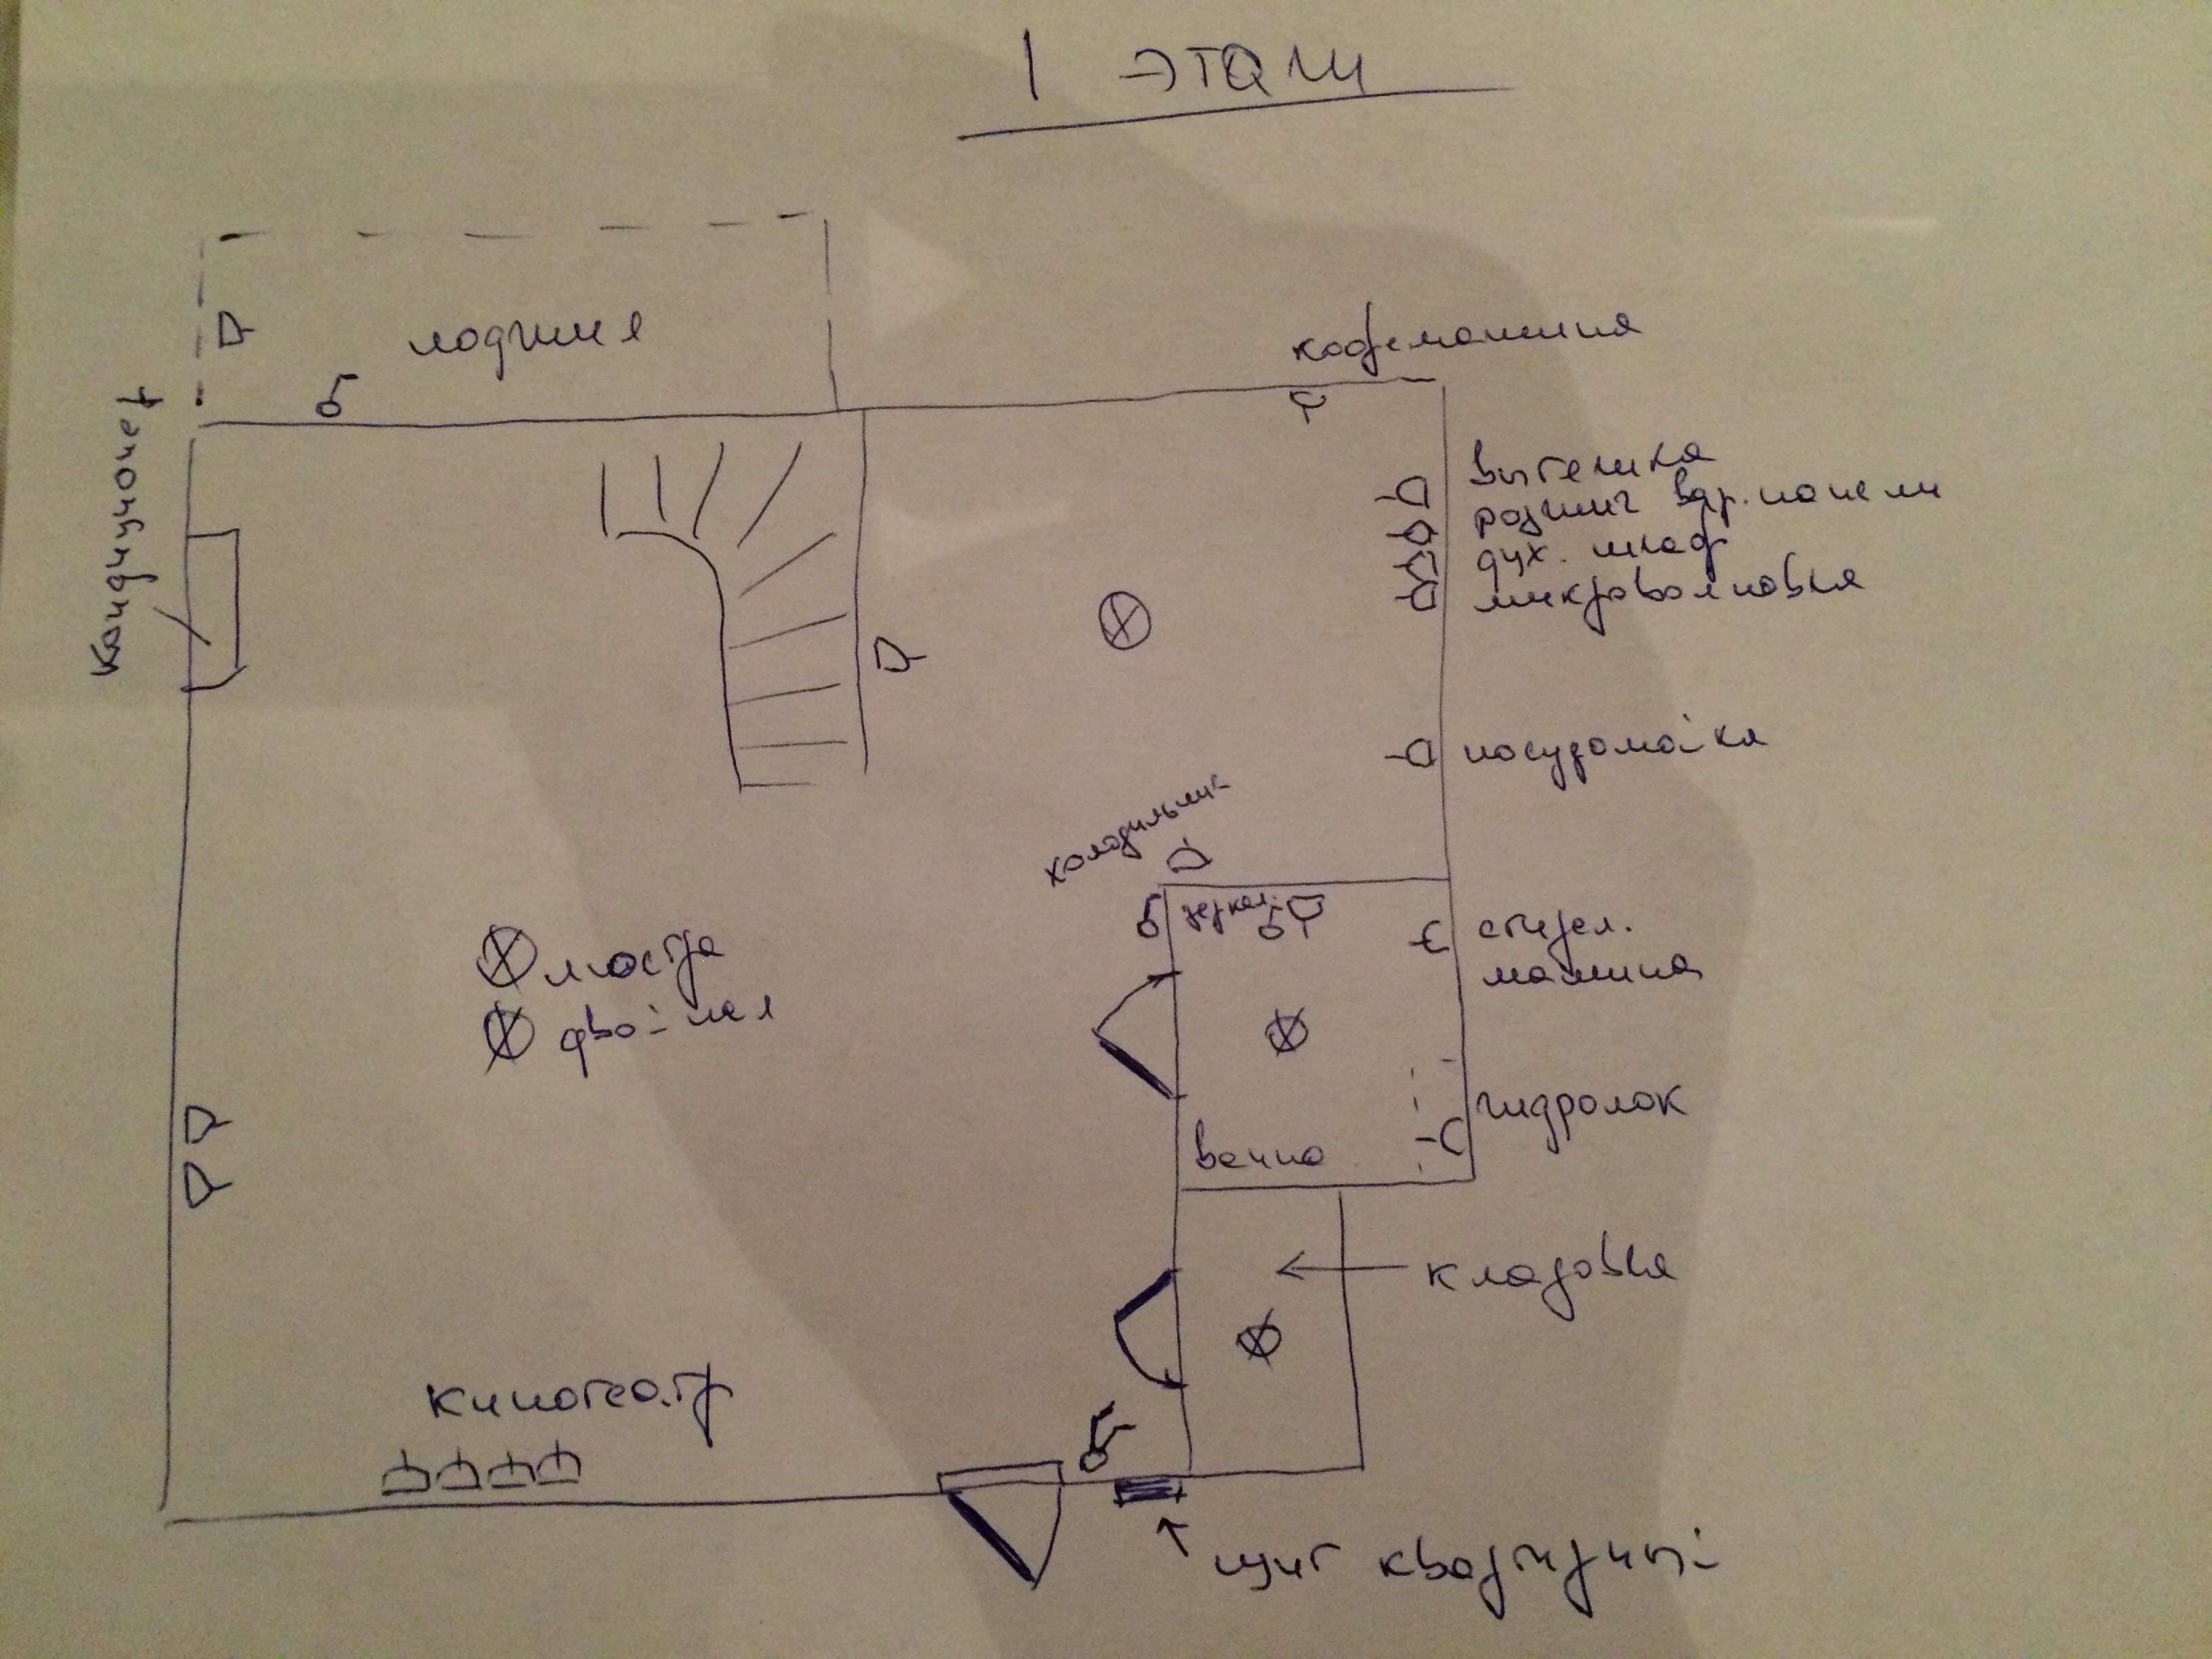 1 этаж
лоджия
кофемашина
Кондиционер
вытяжка
розжиг вар.панели
дух. шкаф
микроволновка
посудомойка
холодильник
зеркал.
стирал.
машина
люстра
двойная
гидролок
ванна
кладовка
кинотеатр
щит квартирный